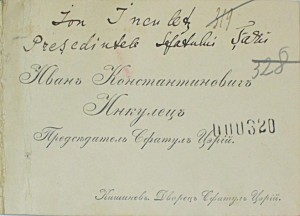 Ion Inculeț 319
Președintele Sfatului Țării
328
Иванъ Константиновичъ
Инкулецъ
Предсѣдатель Сфатулъ Цэрій.
000320
Кишиневъ. Дворецъ Сфатулъ Цэрій.